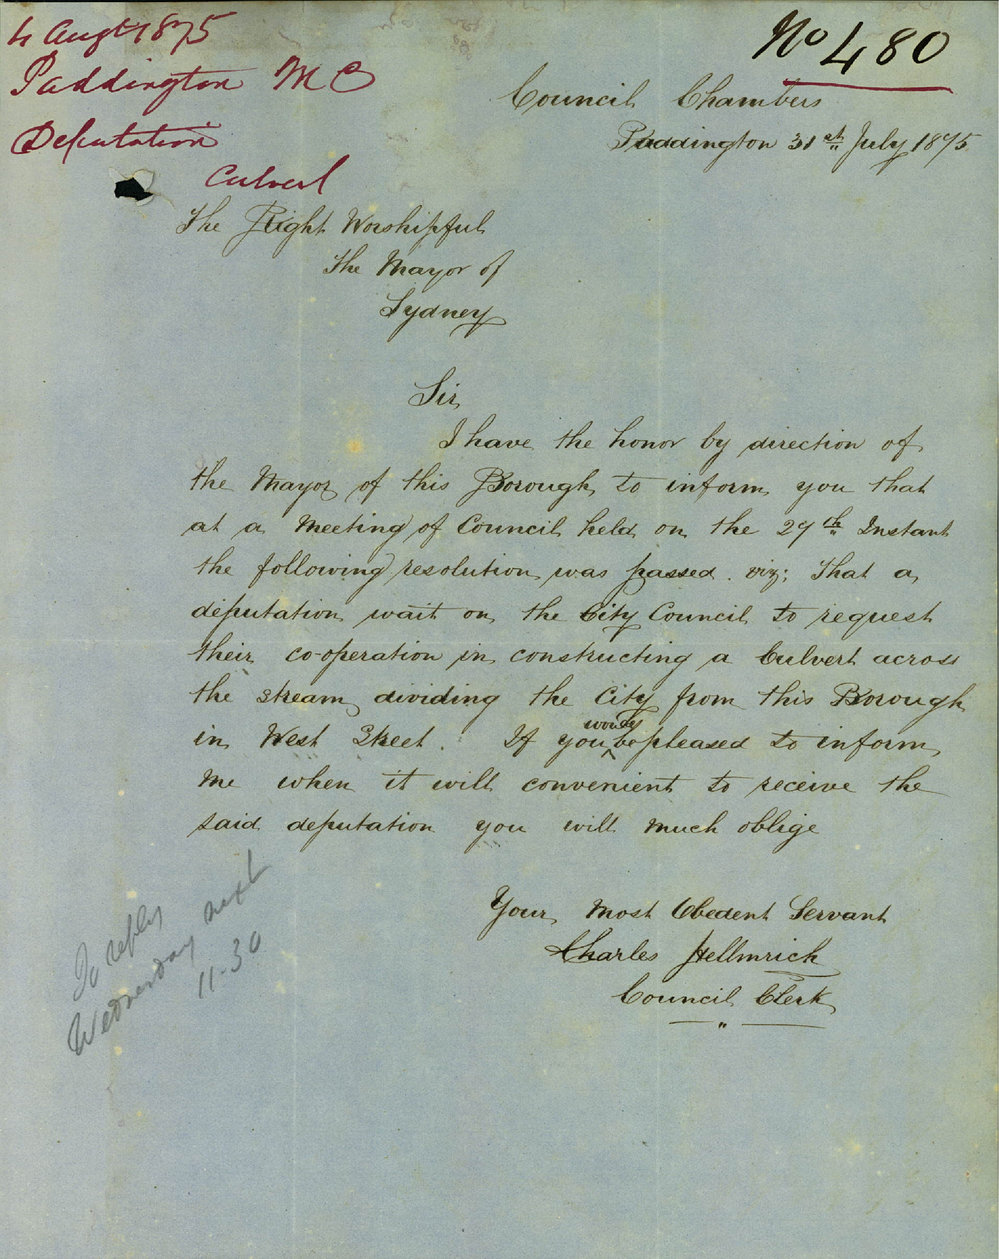 4 Augt 1875
Paddington M C
Deputation
Culvert
No 480
Council Chambers
Paddington 31st July 1875
The Right Worshipful
The Mayor of
Sydney
Sir,
I have the honor by direction of
the Mayor of this Borough to inform you that
at a Meeting of Council held on the 29th Instant
the following resolution was passed. viz; That a
deputation wait on the City Council to request
their co-operation in constructing a Culvert across
the stream dividing the City from this Borough
in West Street. If you would be pleased to inform
me when it will convenient to receive the
said deputation you will much oblige
Your Most Obedent Servant
Charles Hellmrich
Council Clerk
To reply
Wednesday next
11-30